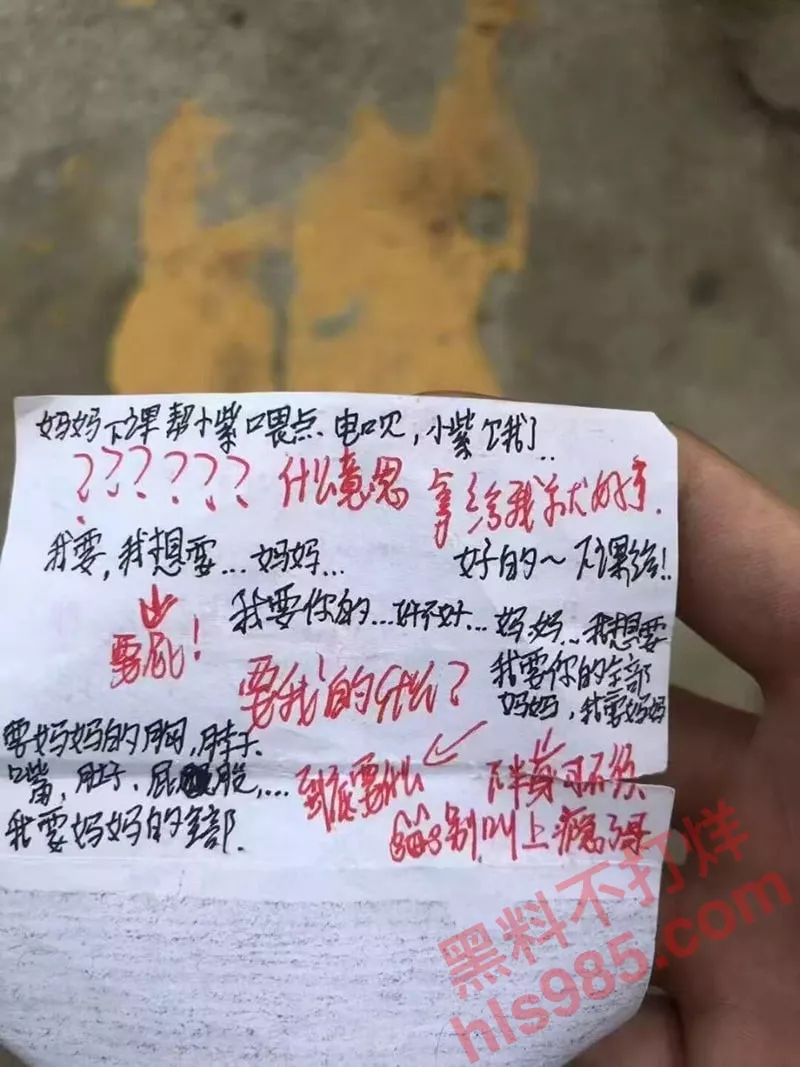 妈妈下课帮小紫喂点电呗,小紫饿了..
？？？？？？ 什么意思 拿给我就好了.
我要,我想要...妈妈... 好的~下课给!!
要屁！ 我要你的...好不好... 妈妈...我想要
要我的什么？ 我要你的全部
妈妈,我要妈妈
要妈妈的胸,脖子.
嘴,肚子、屁股,... 到底要什么 下半身可不
我要妈妈的全部. 别叫上瘾了
黑料不打烊
hls985.com